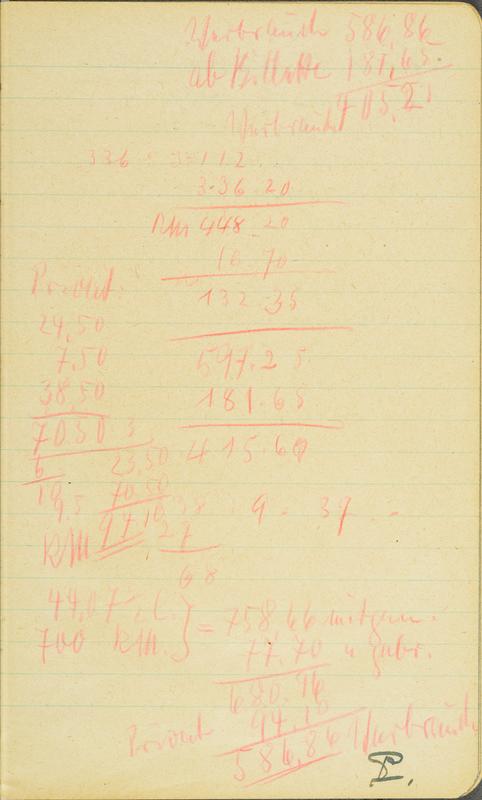 Verbraucht 586,86
ab Billette 181,65.
405,21
Verbraucht
336 : 3 = 112
336.20
RM 448.20
16.70
132.35
Privat:
24,50
7,50
597.25
38,50
181.65
70.50 : 3
415.60
6
23,50
10
70.50
9.5
94,10
27
9. 37 -
RM
68
44,07
700 RM. } = 758 66 mitgen.
77.70 u gebr.
680.96
94.10
Privat
586,86 Verbraucht